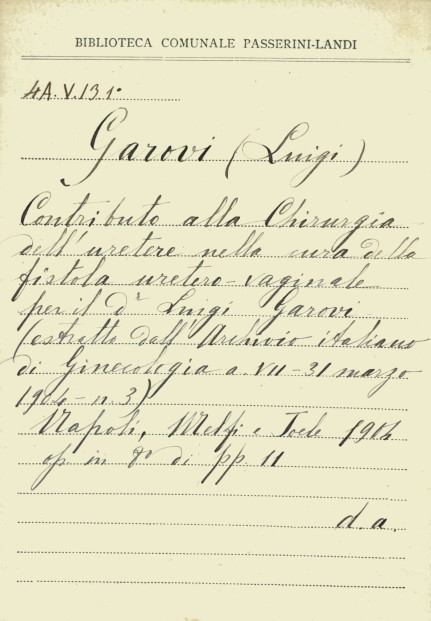 BIBLIOTECA COMUNALE PASSERINI-LANDI
4A.V.13 1º
Garovi (Luigi)
Contributo alla Chirurgia
dell'uretere nella cura della
fistola uretero-vaginale
per il dr Luigi Garovi
(estratto dall'Archivio italiano
di Ginecologia a. VII - 31 marzo
1904 - n. 3)
Napoli, Melfi e Joele 1904
op in 8º di pp. 11
d. a.